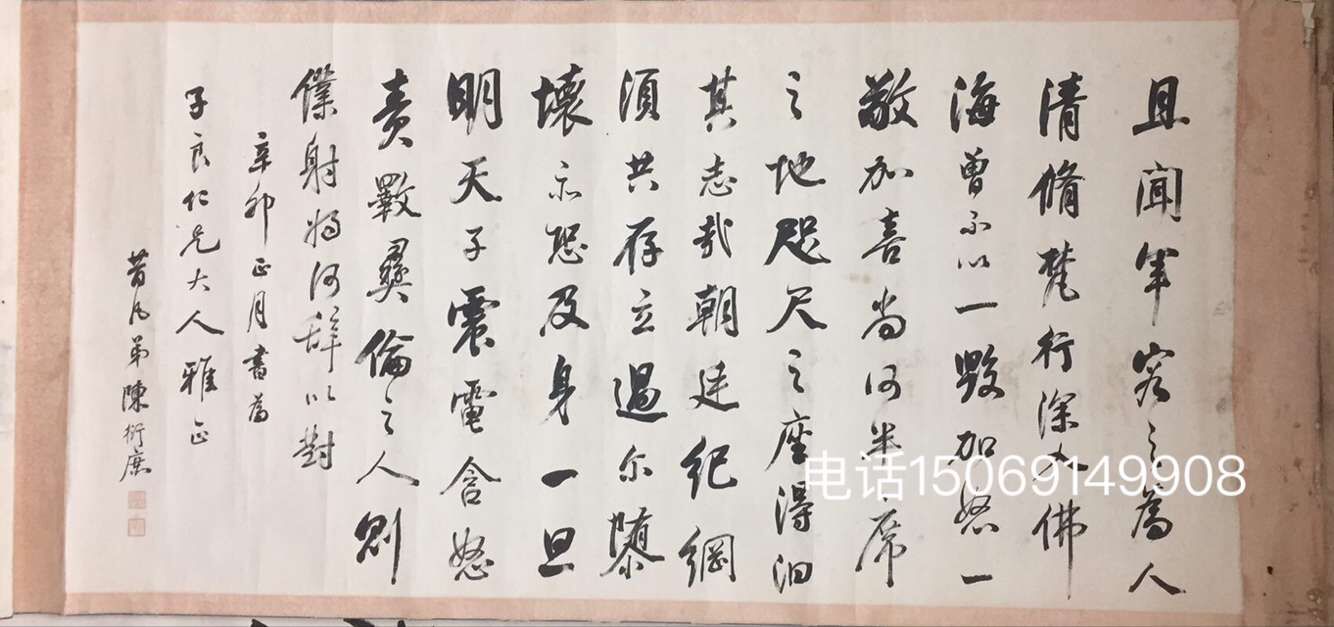 且聞軍容之為人
清脩梵行深入佛
海曾不以一毀加怒一
敬加喜尚何半席
之地咫尺之座得汩
其志哉朝廷紀綱
須共存立過尔隳
壞亦恐及身一旦
明天子震電含怒
責斁彝倫之人則
僕射將何辞以對
辛卯正月書為
子良仁兄大人雅正
昔凡弟陳衍庶
电话15069149908